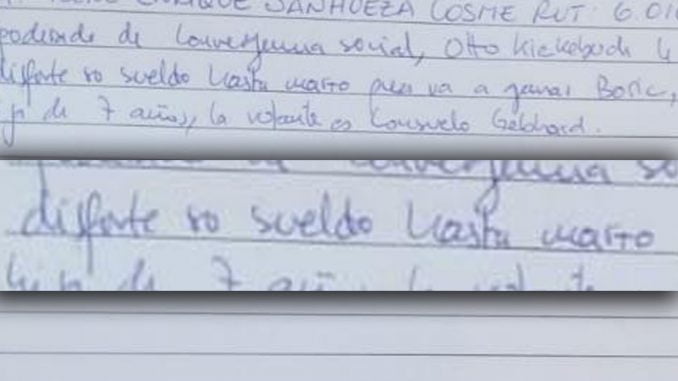 ENRIQUE SANHUEZA COSME RUT: 6.01
poderado de Convergencia social, Otto Kickebusch le
disfrute su sueldo hasta marzo pues va a ganar Boric,
hijo de 7 años, la votante es Consuelo Gebhard.
Convergencia so
disfrute su sueldo hasta marzo
hijo de 7 años, la vot